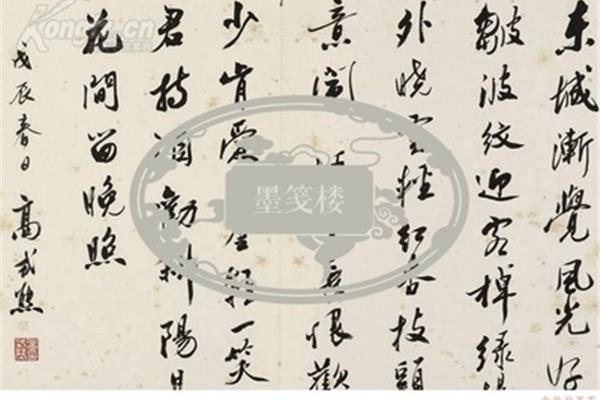 东城漸覺風光好
皺波紋迎客棹綠楊
外曉雲輕紅杏枝頭
意闹長恨歡
少肯愛金輕一笑
君持酒勸斜陽且
花間留晚照
戊辰春日 高式熊
墨笺楼